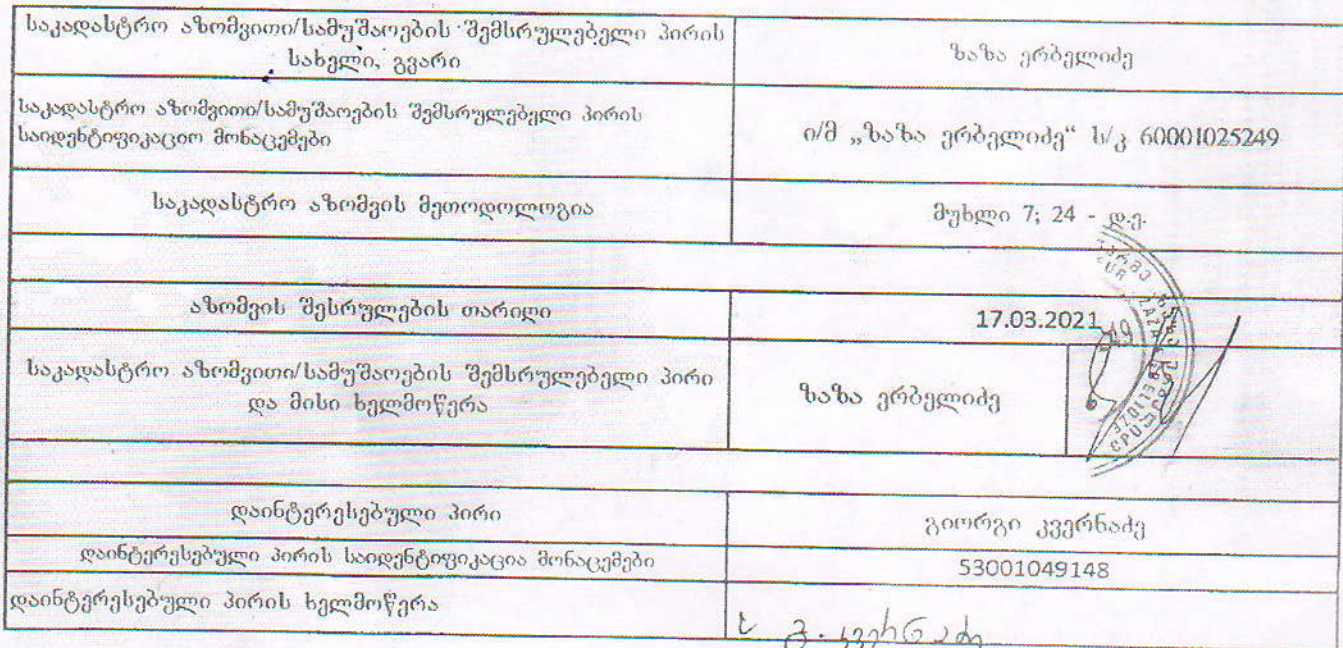 საკადასტრო აზომვითი/სამუშაოების შემსრულებელი პირის
სახელი, გვარი
ზაზა ერბელიძე
საკადასტრო აზომვითი/სამუშაოების შემსრულებელი პირის
საიდენტიფიკაციო მონაცემები
ი/მ „ზაზა ერბელიძე“ ს/კ 60001025249
საკადასტრო აზომვის მეთოდოლოგია
მუხლი 7; 24 - დ.ე.
აზომვის შესრულების თარიღი
17.03.2021
საკადასტრო აზომვითი/სამუშაოების შემსრულებელი პირი
და მისი ხელმოწერა
ზაზა ერბელიძე
დაინტერესებული პირი
გიორგი კვერნაძე
დაინტერესებული პირის საიდენტიფიკაცია მონაცემები
53001049148
დაინტერესებული პირის ხელმოწერა
გ. კვერნაძე